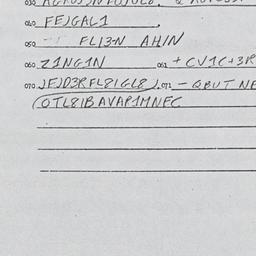 040 FEJGAL1
050 FLI3-N AHIN
060 Z1NG1N 061 + CV1C+3R
070 JEJD3RFL8IGL8). 071 - QBUT NE
(OTL8IB AVAP1MNFC